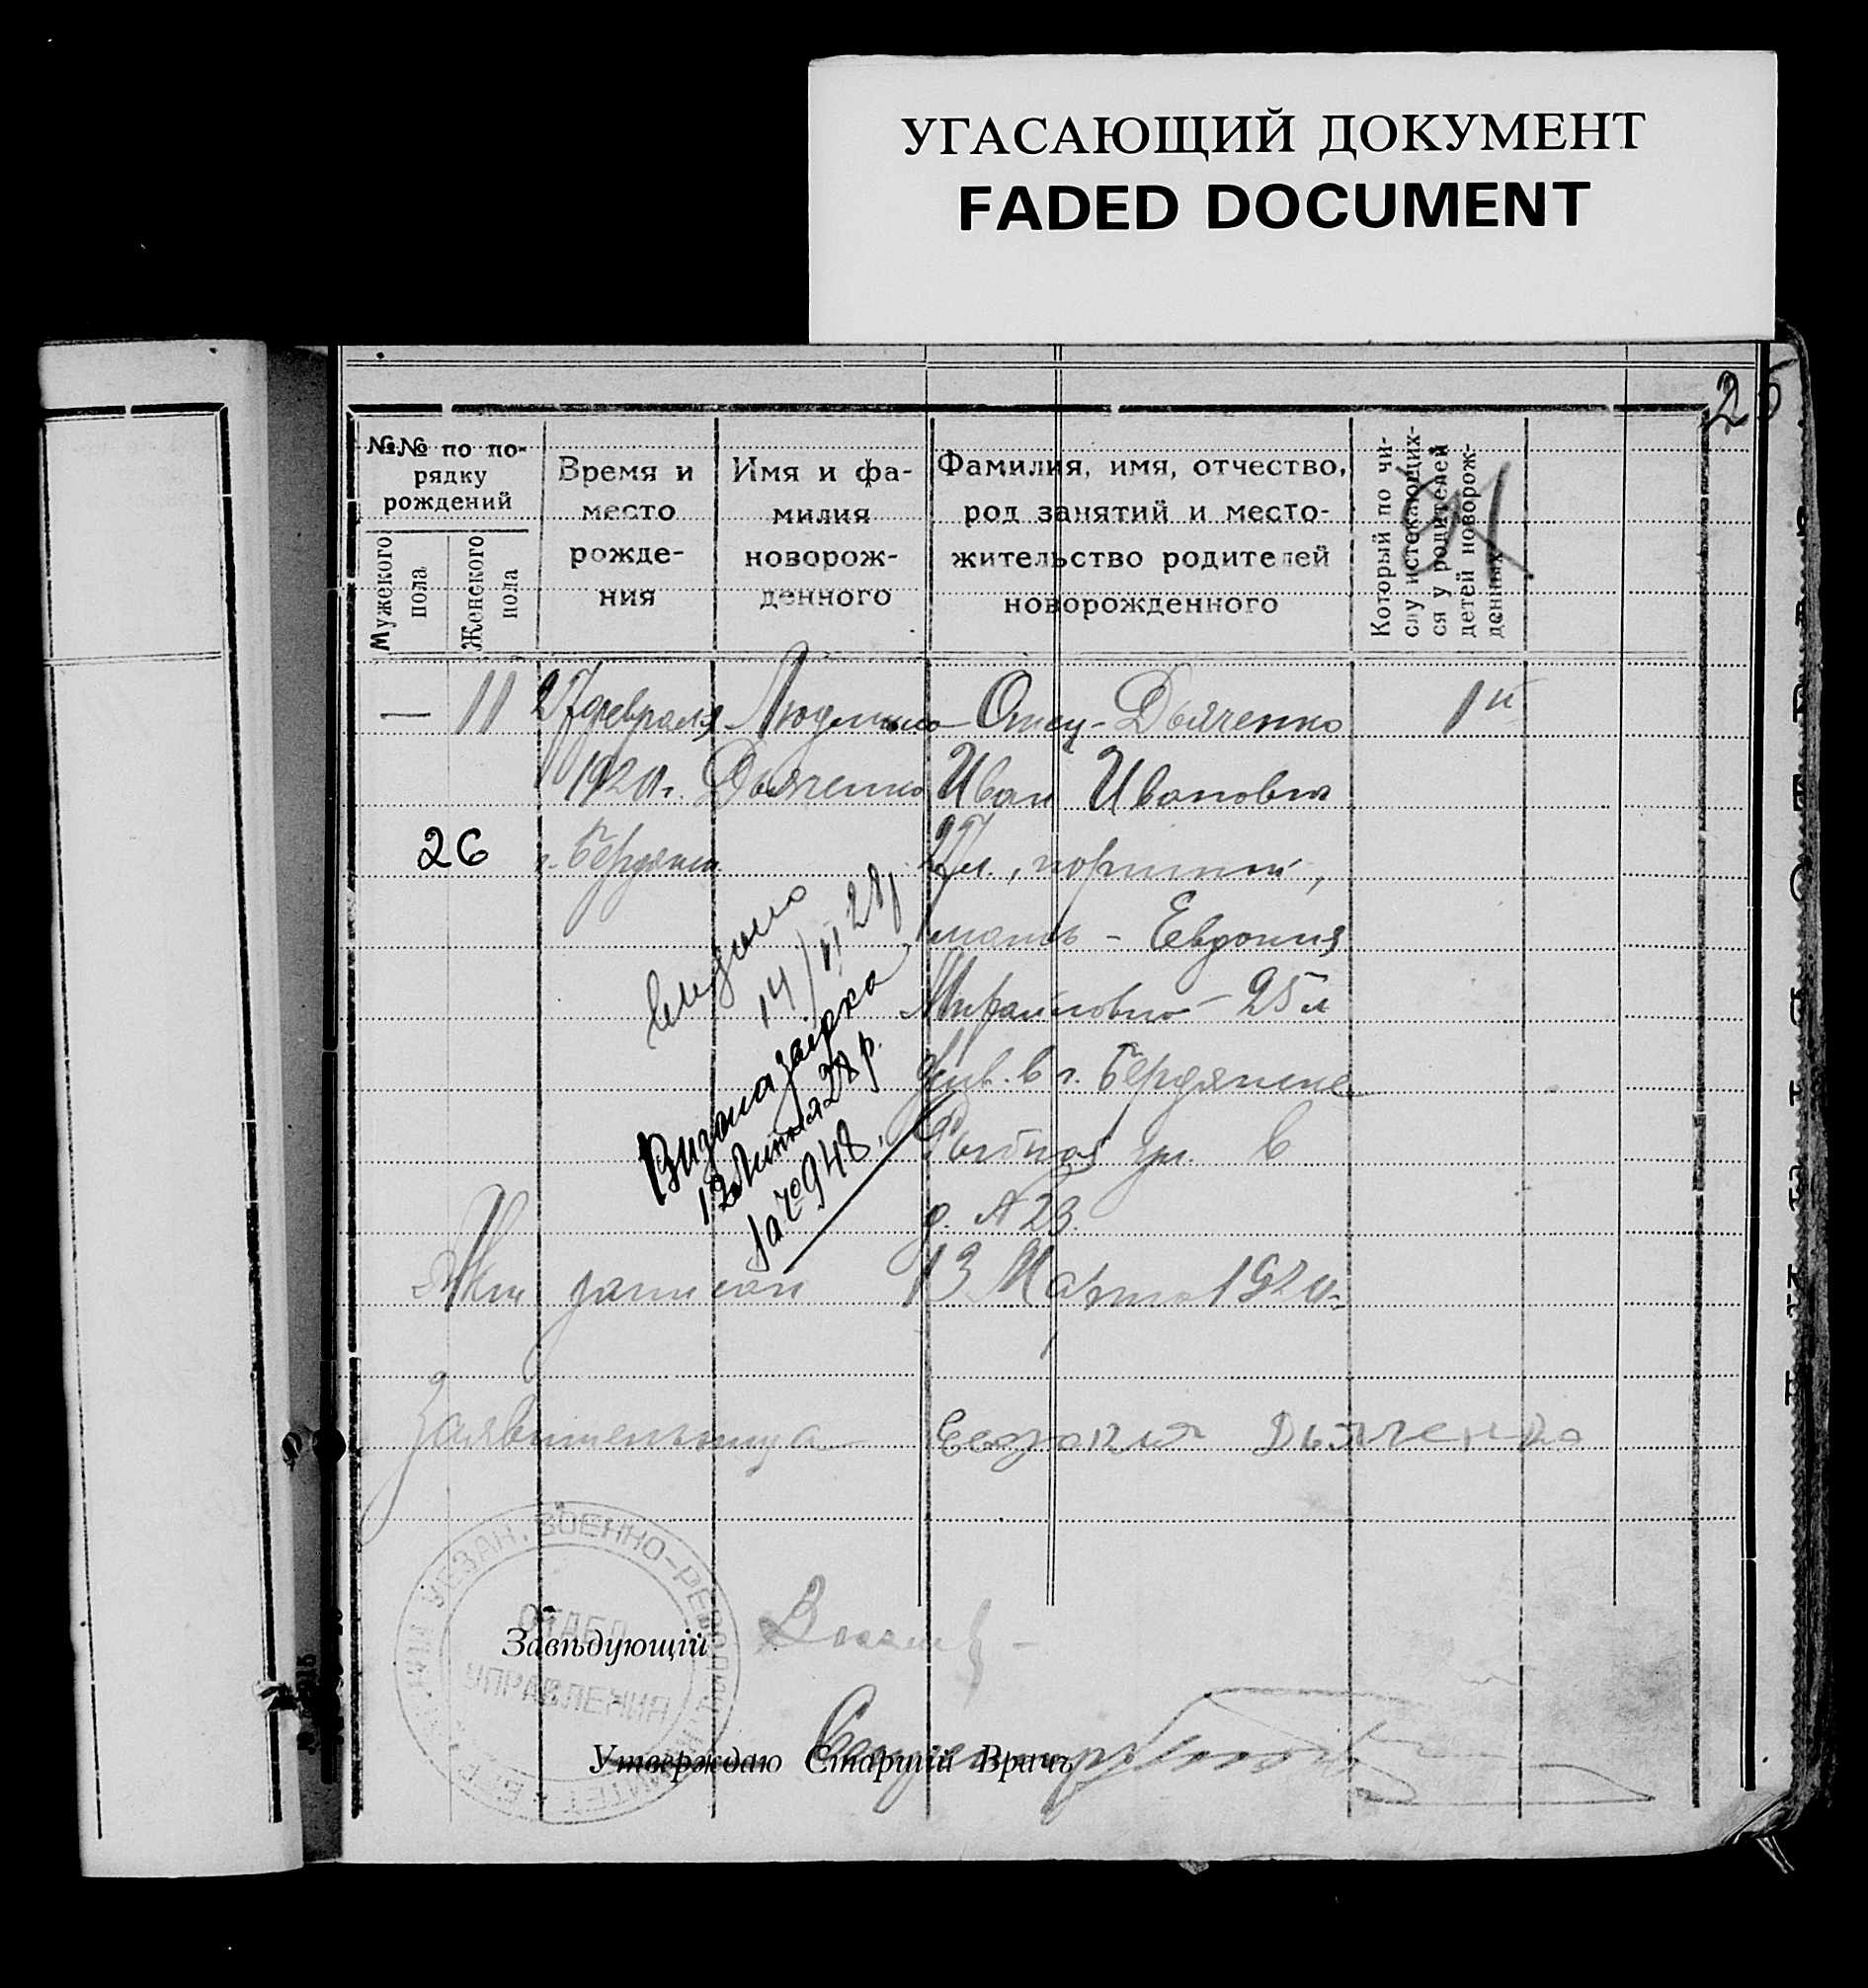 УГАСАЮЩИЙ ДОКУМЕНТ
FADED DOCUMENT
25
№№ по по-
рядку
рождений
Мужского
пола
Женского
пола
Время и
место
рожде-
ния
Имя и фа-
милия
новорож-
денного
Фамилия, имя, отчество,
род занятий и место-
жительство родителей
новорожденного
Который по чи-
слу истекающих-
ся у родителей
детей новорож-
денных
— 11 27 февраля Людмила Отец - Дьяченко 1й
1920 г. Дьяченко Иван Иванович
26 г. Бердянск 27 л., портной,
мать - Евдокия
Михайловна - 25 л
жив. в г. Бердянске
ул. в
д. № 23.
14/II 28
Видана
12 Липня 28 р.
за № 948.
Акт записан 13 Марта 1920 г.
Заявительница Евдокия Дьяченко
УЕЗДН. ВОЕННО-РЕВОЛЮЦ.
ОТДЕЛ
УПРАВЛЕНИЯ
Завѣдующій
Утверждаю Старшій Врачъ